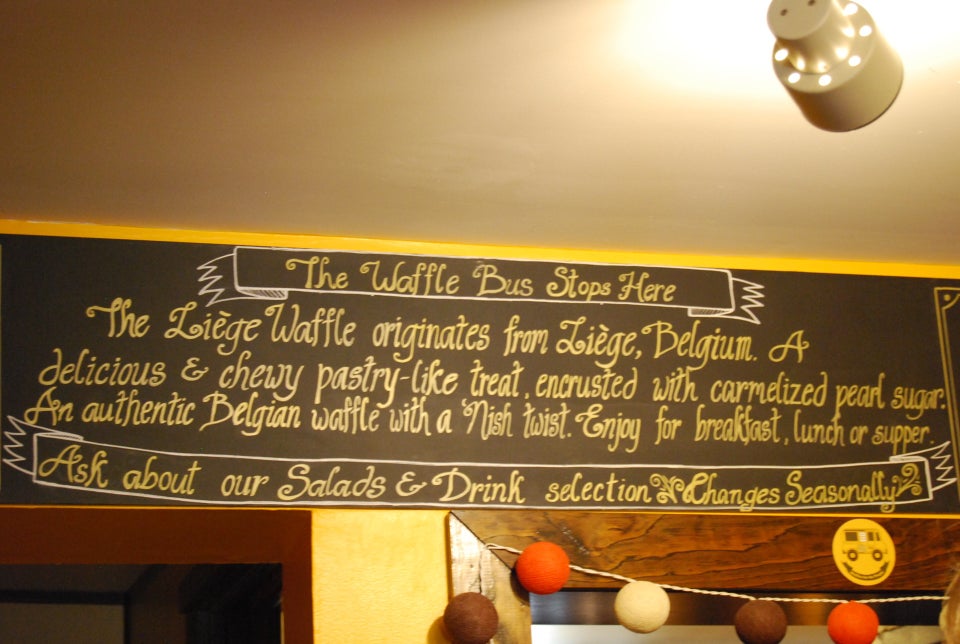 The Waffle Bus Stops Here
The Liège Waffle originates from Liège, Belgium. A
delicious & chewy pastry-like treat, encrusted with carmelized pearl sugar.
An authentic Belgian waffle with a 'Nish twist. Enjoy for breakfast, lunch or supper.
Ask about our Salads & Drink selection Changes Seasonally